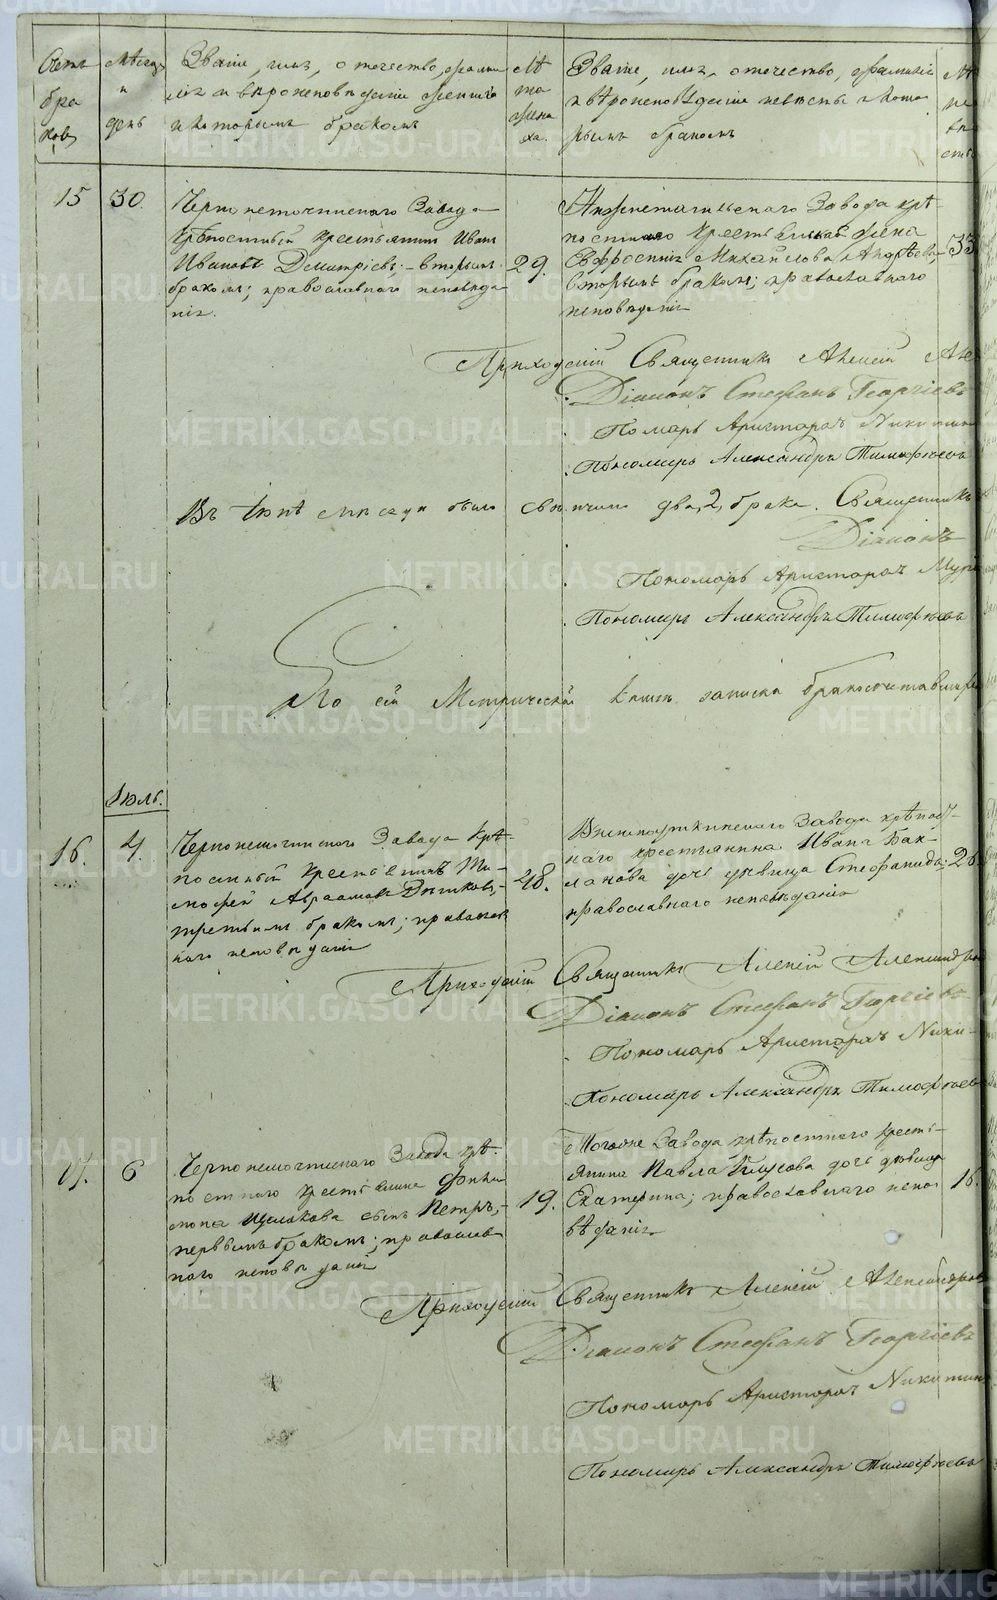 Счетъ браковъ
Мѣсяцъ и день
Званіе, имя, отечество, фамилія и вѣроисповѣданіе жениха и которымъ бракомъ
Лѣта жениха.
Званіе, имя, отечество, фамилія и вѣроисповѣданіе невѣсты и которымъ бракомъ
15
30.
Черноисточинскаго Завода
Крѣпостный крестьянинъ Иванъ
Ивановъ Демитріевъ, вторымъ
бракомъ; православнаго исповѣда-
нія.
29.
Нижнетагильскаго Завода крѣ-
постнаго крестьянина жена
Евфросинія Михайлова Андрѣева
вторымъ бракомъ; православнаго
исповѣданія
33
Приходскій Священникъ Алексій Але
Діаконъ Стефанъ Георгіевъ
Пономарь Аристархъ Никитин
Пономарь Александръ Тимофѣевъ
Въ Іюнѣ мѣсяцѣ было свѣнчано два, 2, брака. Священникъ
Діаконъ
Пономарь Аристархъ
Пономарь Александръ Тимофѣевъ
По сей Метрической книгѣ записка бракосочетавши
Іюль.
16.
4.
Черноисточинскаго Завода крѣ-
постный крестьянинъ Ти-
мофей Авраамовъ
третьимъ бракомъ; православ
наго исповѣданія
48.
Висимоуткинскаго Завода крѣпост-
наго крестьянина Ивана Бак-
ланова дочь дѣвица Стефанида;
православнаго исповѣданія
26
Приходскій Священникъ Алексій Александров
Діаконъ Стефанъ Георгіевъ
Пономарь Аристархъ Ники-
Пономарь Александръ Тимофѣев
17.
6
Черноисточинскаго Завода крѣ-
постнаго крестьянина
Щелокова сынъ Петръ,
первымъ бракомъ; православ
наго исповѣданія
19.
Тогоже Завода крѣпостнаго кресть-
янина Павла дочь дѣвица
Екатерина; православнаго испо-
вѣданія
16.
Приходскій Священникъ Алексій Александров
Діаконъ Стефанъ Георгіевъ
Пономарь Аристархъ Никитин
Пономарь Александръ Тимофѣевъ
METRIKI.GASO-URAL.RU